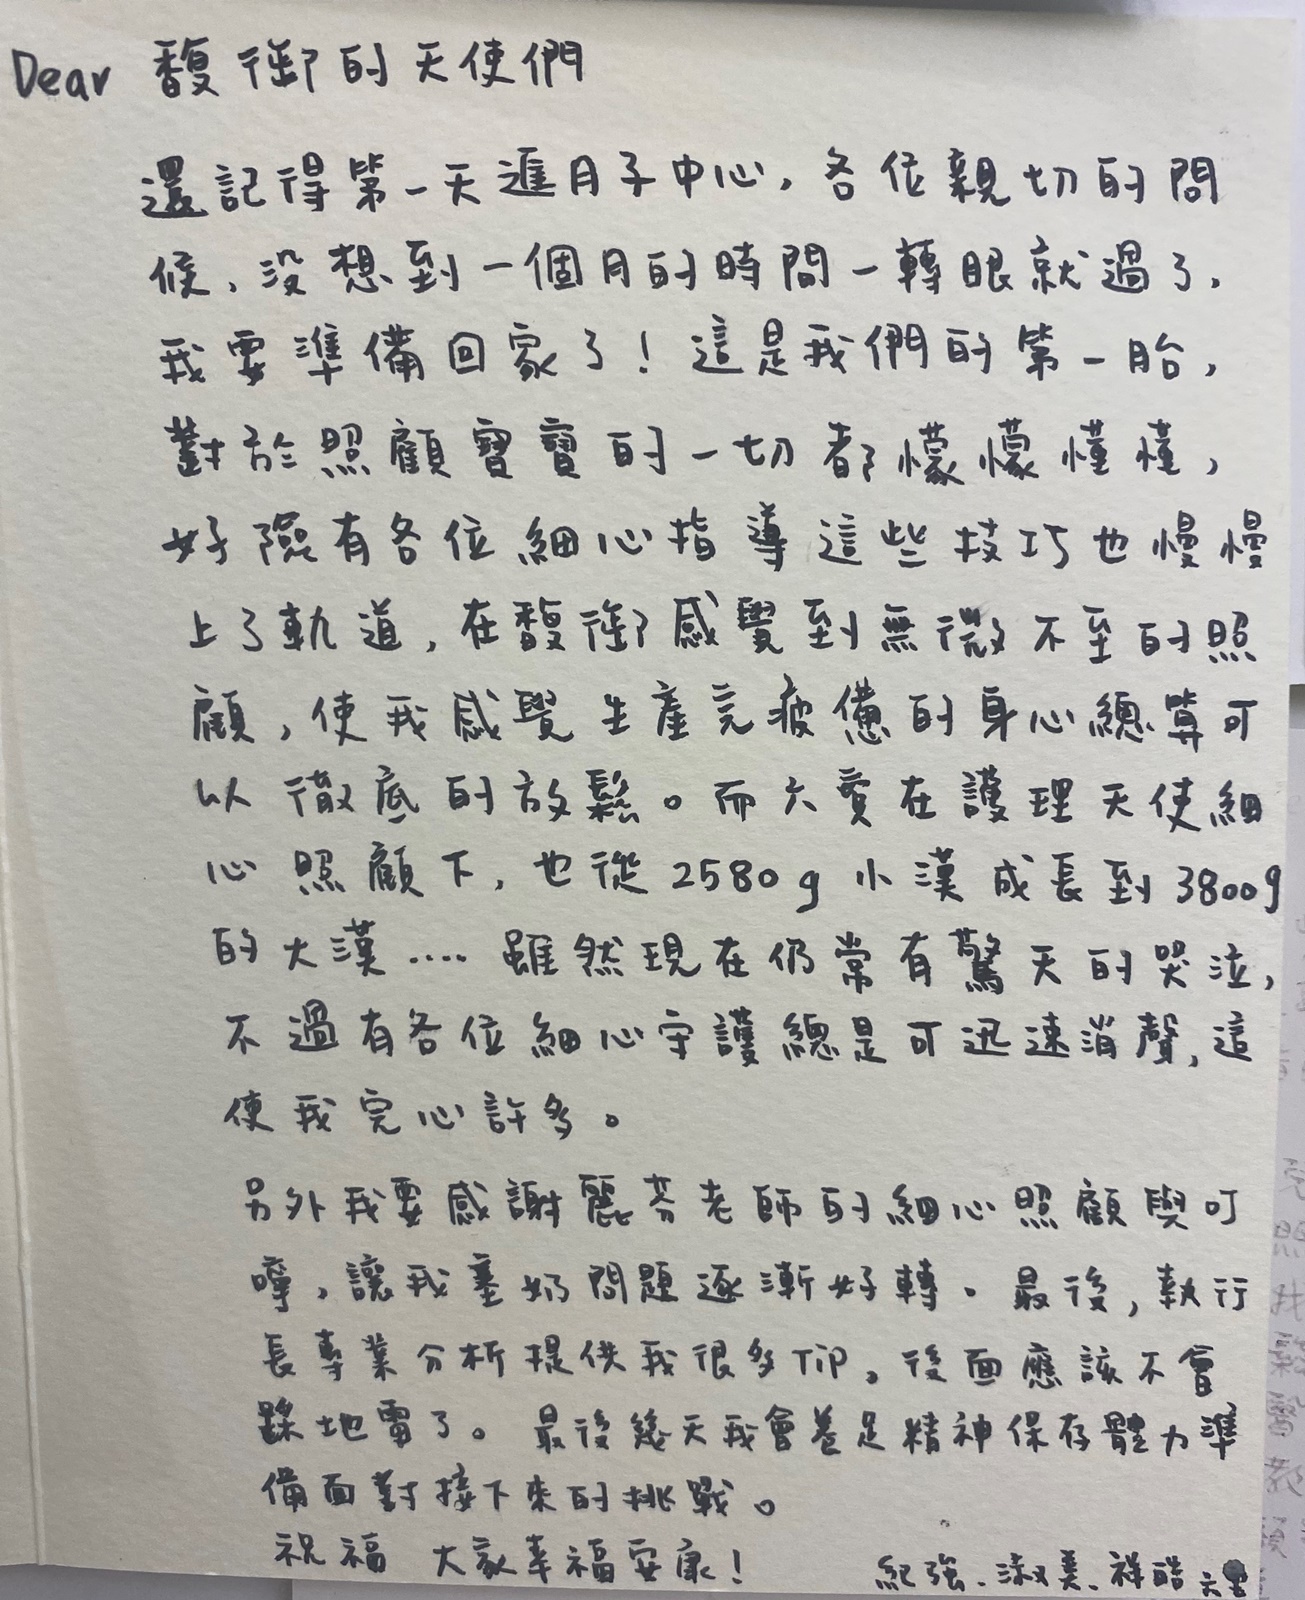 Dear 馥御的天使們
還記得第一天進月子中心,各位親切的問
候、沒想到一個月的時間一轉眼就過了,
我要準備回家了!這是我們的第一胎,
對於照顧寶寶的一切都懞懞懂懂,
好險有各位細心指導這些技巧也慢慢
上了軌道,在馥御感覺到無微不至的照
顧,使我感覺生產完疲憊的身心總算可
以徹底的放鬆。而六寶在護理天使細
心照顧下,也從2580g小漢成長到3800g
的大漢....雖然現在仍常有驚天的哭泣,
不過有各位細心守護總是可迅速消聲,這
使我完心許多。
另外我要感謝麗芬老師的細心照顧與叮
嚀,讓我塞奶問題逐漸好轉。最後,執行
長專業分析提供我很多TIP。後面應該不會
踩地雷了。最後幾天我會養足精神保存體力準
備面對接下來的挑戰。
祝福 大家幸福安康!
紀強、淑美、祥酷